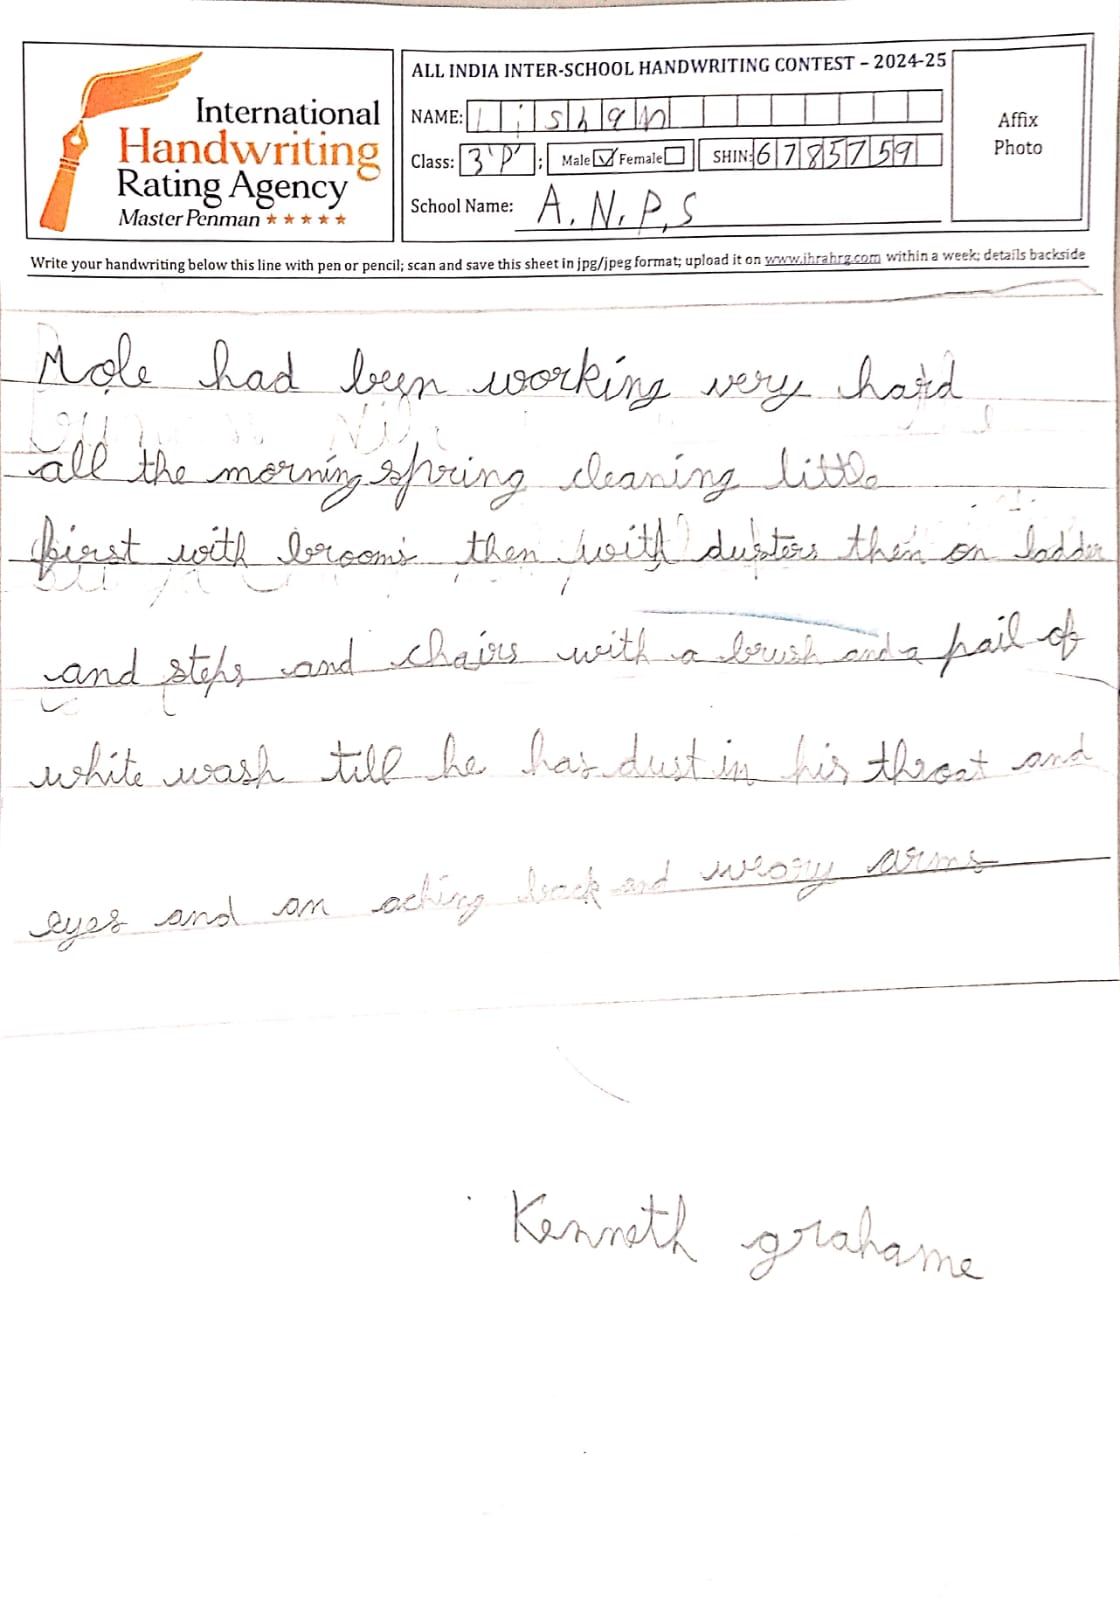 International
Handwriting
Rating Agency
Master Penman ★★★★★
ALL INDIA INTER-SCHOOL HANDWRITING CONTEST – 2024-25
NAME: Lishan
Class: 3'P' ; Male ☑ Female ☐ SHIN: 6785759
School Name: A.N.P.S
Affix
Photo
Write your handwriting below this line with pen or pencil; scan and save this sheet in jpg/jpeg format; upload it on www.ihrahrg.com within a week; details backside
Mole had been working very hard
all the morning spring cleaning little
first with brooms then with dusters then on ladder
and steps and chairs with a brush and a pail of
white wash till he has dust in his throat and
eyes and an aching back and weary arms
Kenneth grahame